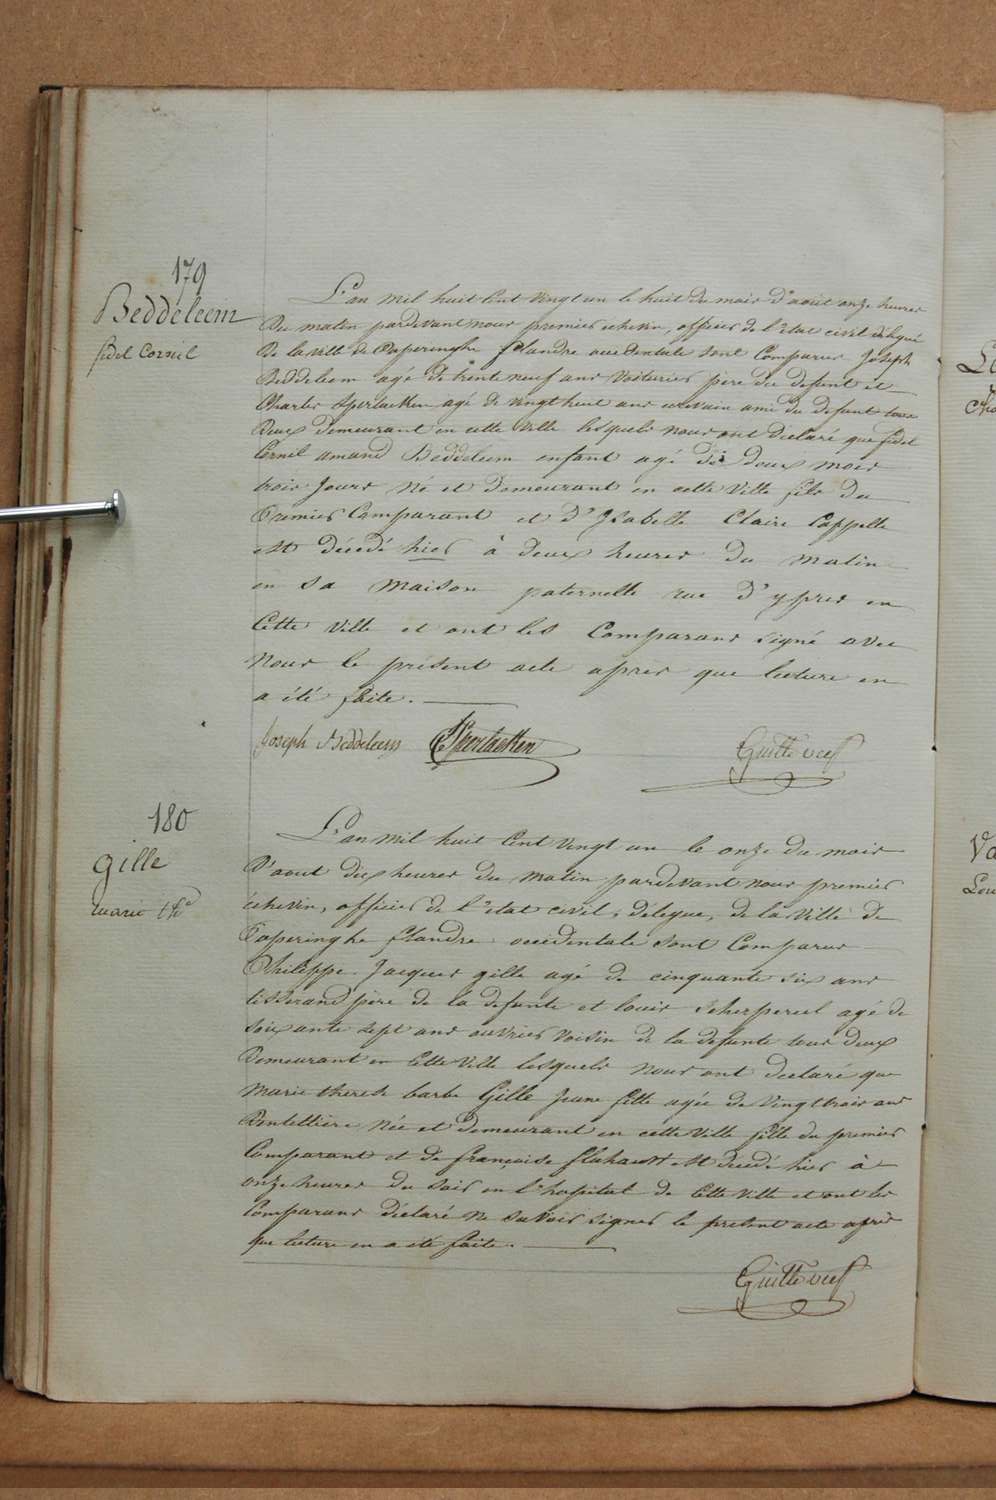 179
Beddeleem
fidel Cornil
L'an mil huit cent vingt un le huit du mois d'août onze heures
du matin pardevant nous premier échevin, officier de l'état civil délégué
de la ville de Poperinghe flandre occidentale sont Comparus Joseph
Beddeleem agé de trente neuf ans voiturier père du défunt et
Charles Sperlaeken agé de vingt huit ans écrivain ami du defunt tous
deux demeurant en cette ville lesquels nous ont declaré que fidel
Cornil amand Beddeleem enfant agé de deux mois
trois jours né et demeurant en cette ville fils du
Premier Comparant et d'Isabelle Claire Cappelle
est décédé hier à deux heures du matin
en sa maison paternelle rue d'ypres en
Cette ville et ont les Comparans signé avec
Nous le présent acte apres que lecture en
a été faite.
Joseph Beddeleem
180
gille
marie the
L'an mil huit Cent vingt un le onze du mois
d'aout dix heures du matin pardevant nous premier
échevin, officier de l'état civil, délégué, de la ville de
Poperinghe flandre occidentale sont Comparus
Philippe Jacques gille agé de cinquante six ans
tisserand père de la defunte et louis scherpereel agé de
soixante sept ans ouvrier voisin de la defunte tous deux
Demeurant en Cette ville lesquels nous ont declaré que
marie therese barbe Gille jeune fille agée de vingt trois ans
Dentellière née et demeurant en cette ville fille du premier
Comparant et de françoise flahault est décédé hier à
onze heures du soir en l'hopital de Cette ville et ont les
Comparans déclaré ne savoir signer le présent acte après
que lecture en a été faite.